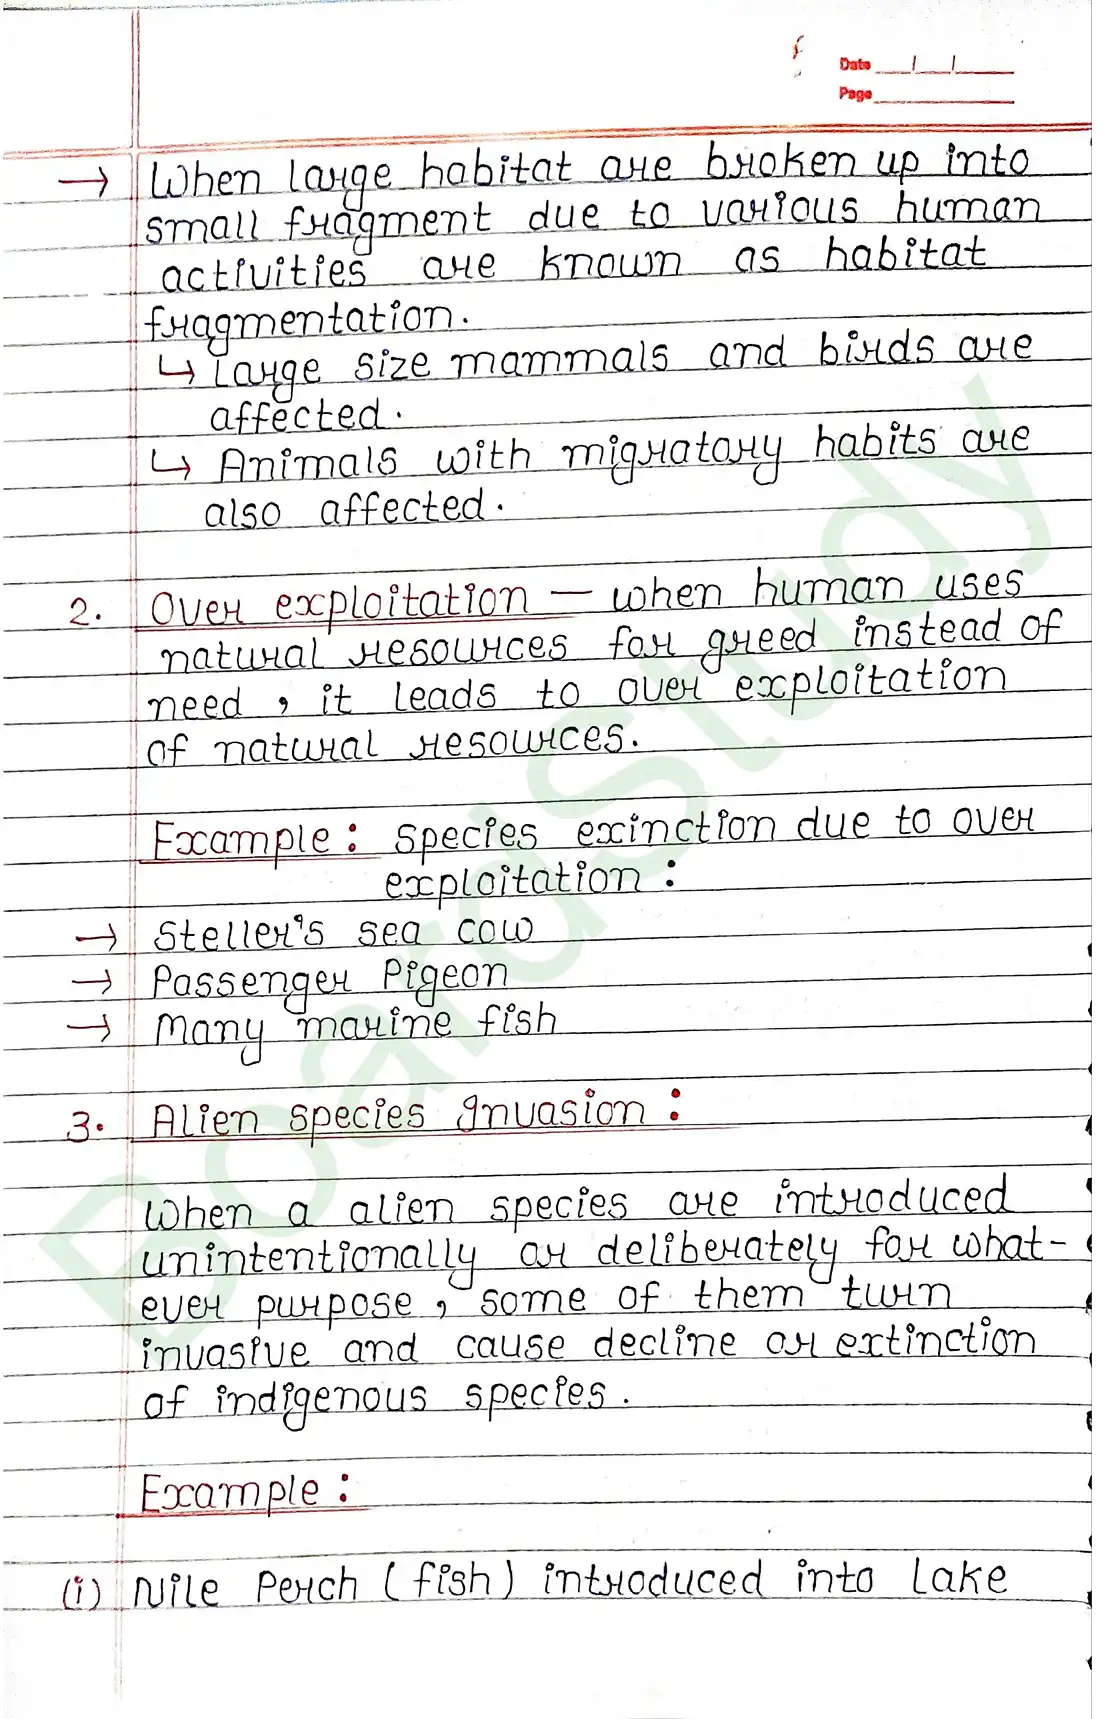 Date __/__/____
Page __________
→ When large habitat are broken up into
small fragment due to various human
activities are known as habitat
fragmentation.
↳ Large size mammals and birds are
affected.
↳ Animals with migratory habits are
also affected.
2. Over exploitation — when human uses
natural resources for greed instead of
need, it leads to over exploitation
of natural resources.
Example: species exinction due to over
exploitation:
→ Steller's sea cow
→ Passenger Pigeon
→ Many marine fish
3. Alien species Invasion:
When a alien species are introduced
unintentionally or deliberately for what-
ever purpose, some of them turn
invasive and cause decline or extinction
of indigenous species.
Example:
(i) Nile Perch (fish) introduced into Lake
BoardStudy